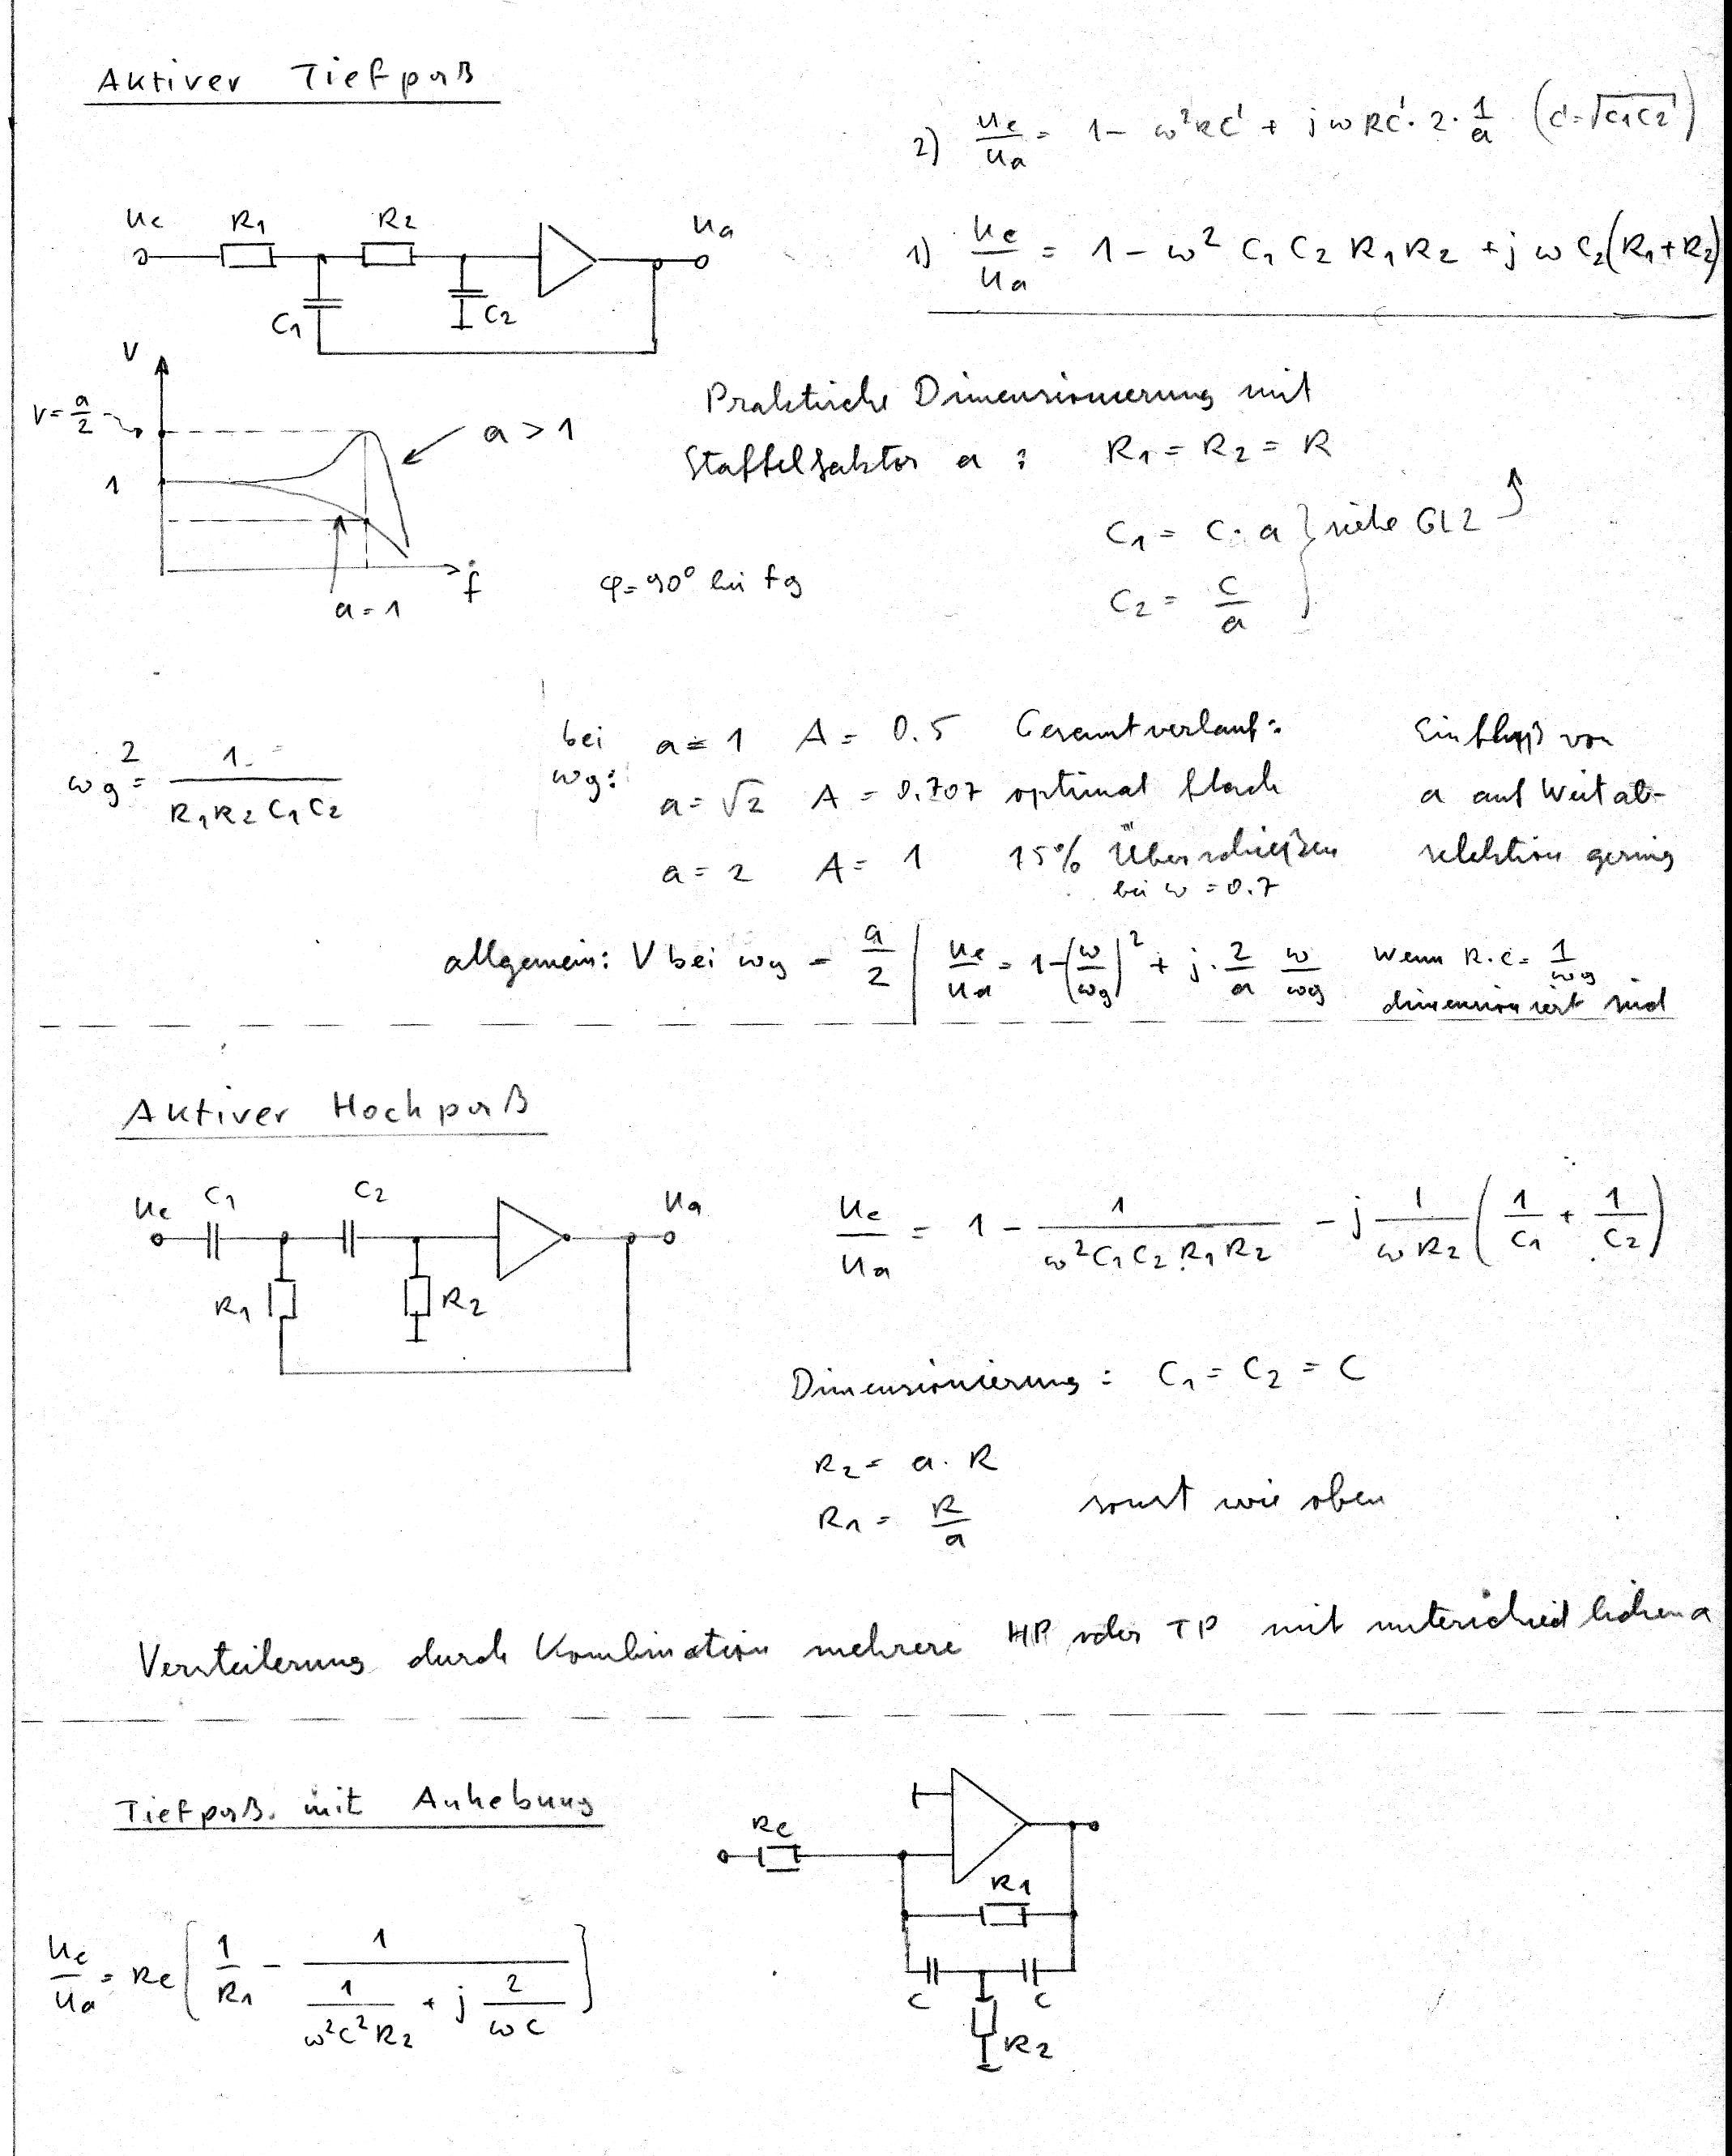 Aktiver Tiefpaß
2) ue/ua = 1 - ω²RC' + jωRC'·2·1/a (C'=√C1C2)
ue R1 R2 ua
C1 C2
1) ue/ua = 1 - ω² C1 C2 R1 R2 + jω C2(R1+R2)
V
V = a/2
a > 1
1
a = 1
f
φ = 90° bei fg
Praktische Dimensionierung mit
Staffelfaktor a : R1 = R2 = R
C1 = C · a } siehe Gl 2
C2 = C/a
ωg² = 1/(R1R2C1C2)
bei ωg: a = 1 A = 0.5 Gesamtverlauf: Einfluß von
a = √2 A = 0.707 optimal flach a auf Weitab-
a = 2 A = 1 15% Überschießen selektion gering
bei ω = 0.7
allgemein: V bei ωg = a/2 | ue/ua = 1-(ω/ωg)² + j·2/a ω/ωg wenn R·C = 1/ωg
dimensioniert sind
Aktiver Hochpaß
ue C1 C2 ua
R1 R2
ue/ua = 1 - 1/(ω²C1C2R1R2) - j 1/(ωR2) (1/C1 + 1/C2)
Dimensionierung : C1 = C2 = C
R2 = a · R
R1 = R/a sonst wie oben
Versteilerung durch Kombination mehrere HP oder TP mit unterschiedlichen a
Tiefpaß mit Anhebung
Re
R1
C C
R2
ue/ua = Re [ 1/R1 - 1/(1/(ω²C²R2) + j 2/(ωC)) ]